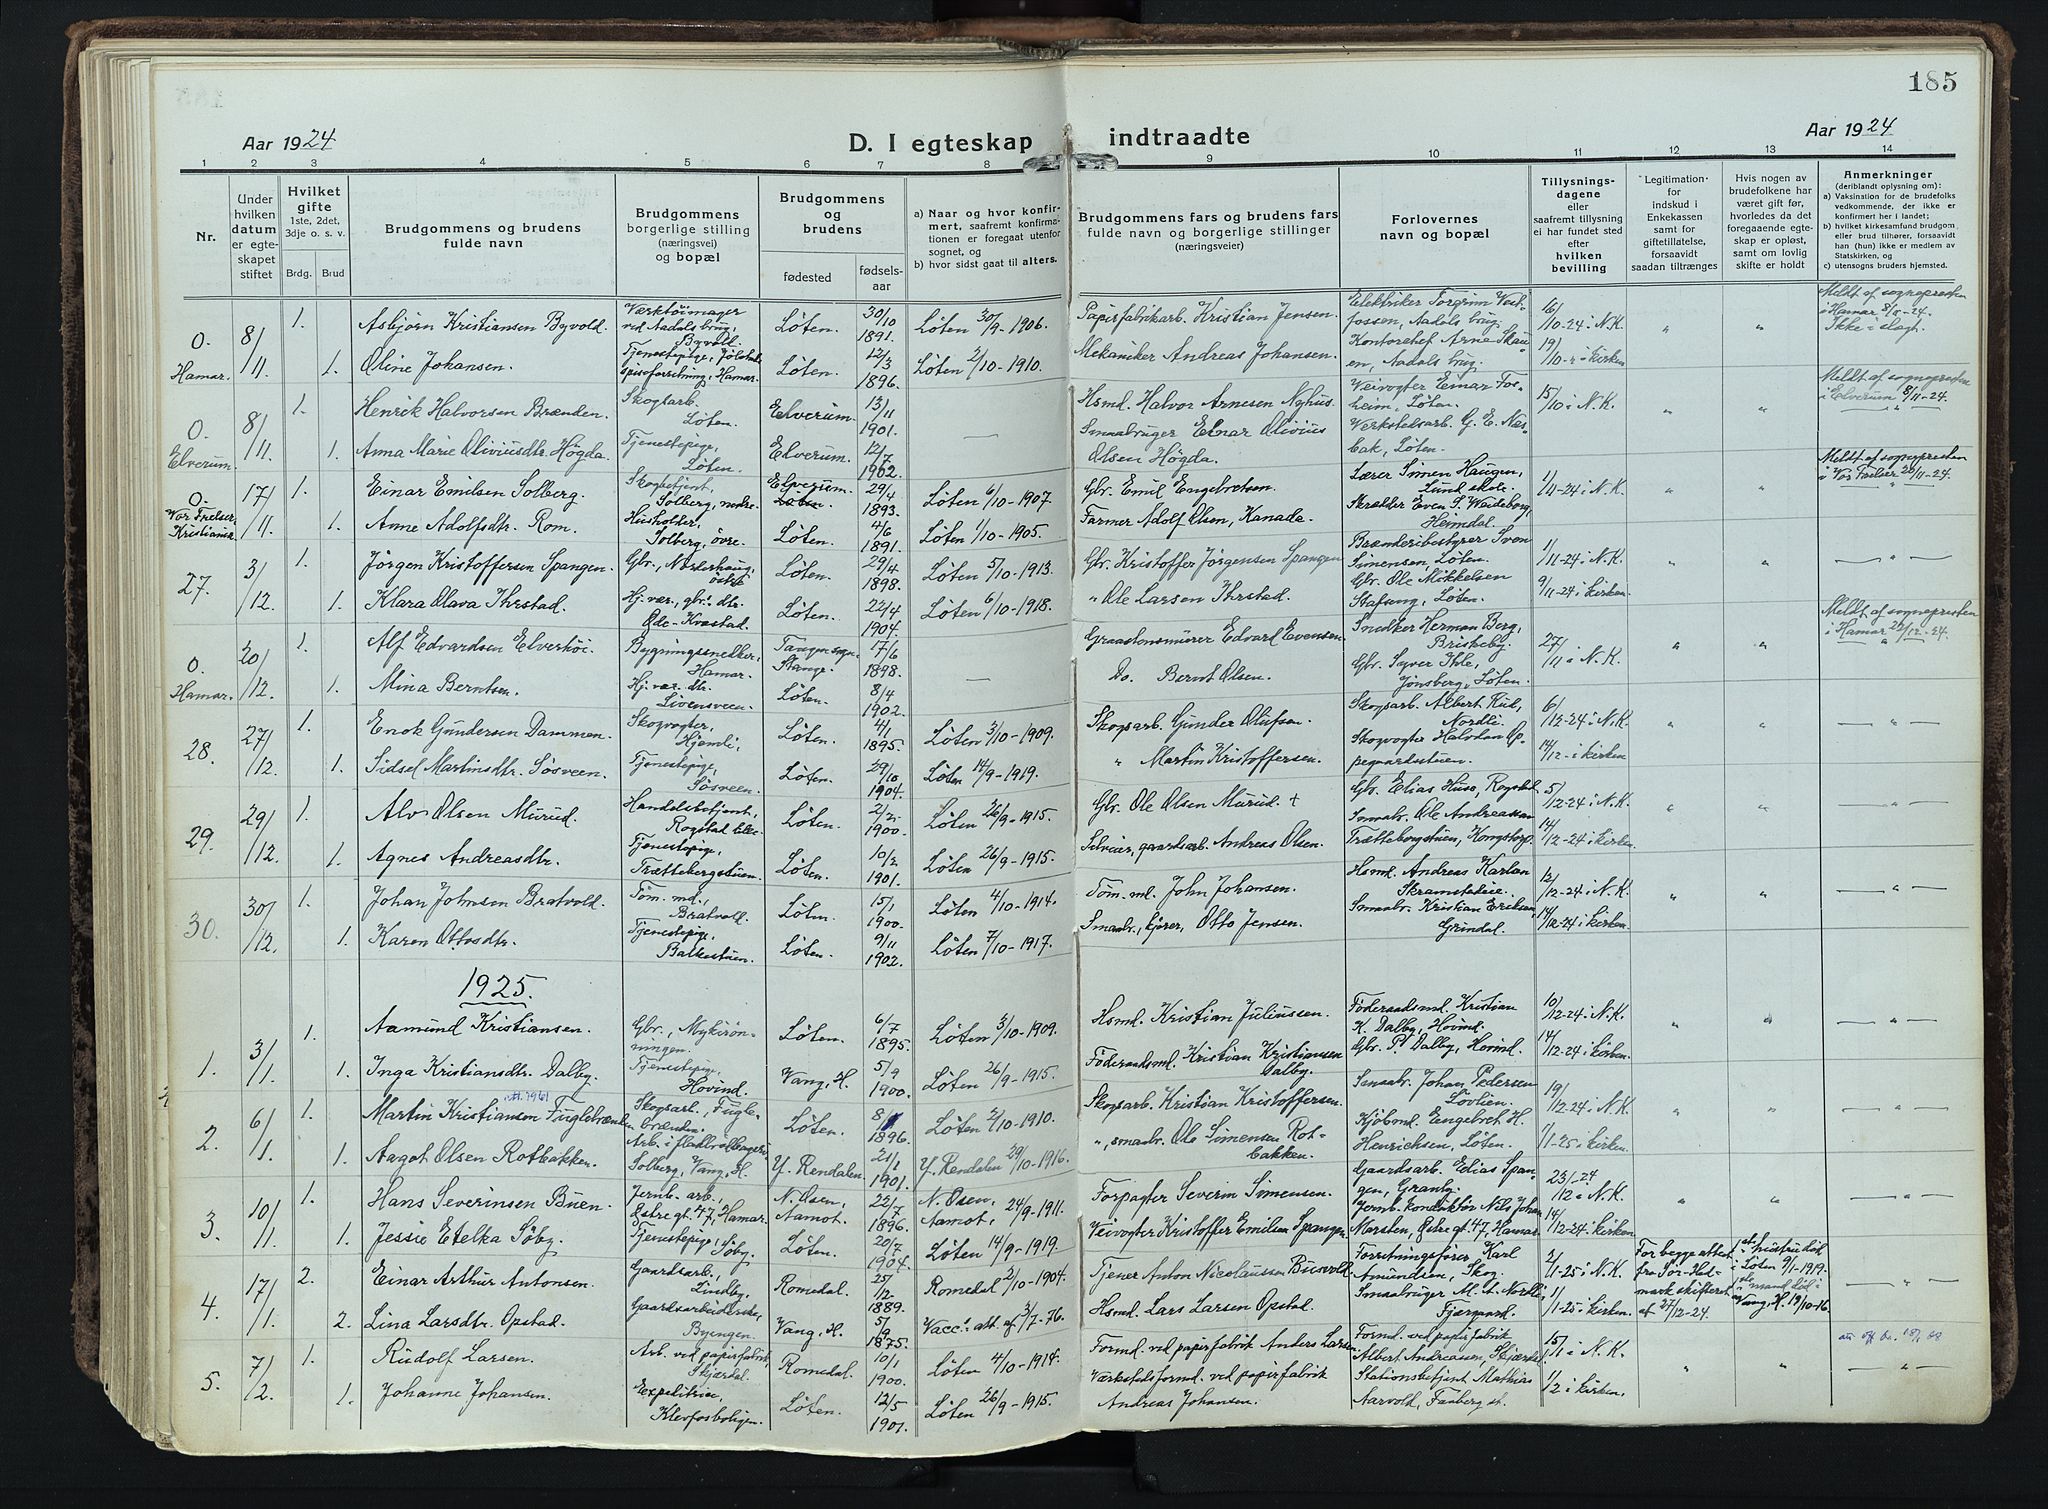 185
Aar 1924
D. I egteskap indtraadte
Aar 1924
1 2 3 4 5 6 7 8 9 10 11 12 13 14
Nr.
Under hvilken datum er egteskapet stiftet
Hvilket gifte
1ste, 2det, 3dje o. s. v.
Brdg. Brud
Brudgommens og brudens fulde navn
Brudgommens borgerlige stilling (næringsvei) og bopæl
Brudgommens og brudens
fødested
fødselsaar
a) Naar og hvor konfirmert, saafremt konfirmationen er foregaat utenfor sognet, og
b) hvor sidst gaat til alters.
Brudgommens fars og brudens fars fulde navn og borgerlige stillinger (næringsveier)
Forlovernes navn og bopæl
Tillysningsdagene eller saafremt tillysning ei har fundet sted efter hvilken bevilling
Legitimation for indskud i Enkekassen samt for giftetillatelse, forsaavidt saadan tiltrænges
Hvis nogen av brudefolkene har været gift før, hvorledes da det foregaaende egteskap er opløst, samt om lovlig skifte er holdt
Anmerkninger
(deriblandt oplysning om):
a) Vaksination for de brudefolks vedkommende, der ikke er konfirmert her i landet;
b) hvilket kirkesamfund brudgom eller brud tilhører, forsaavidt han (hun) ikke er medlem av Statskirken, og
c) utensogns bruders hjemsted.
0. Hamar. 8/11. 1. Asbjørn Kristiansen Byvold. Værktøimager ved Aadals brug, Byvoll. Løten. 30/10 1891. Løten 30/9-1906. Papirfabrikarb. Kristian Jensen. Elektriker Torgrim Vestfossen, Aadals brug. 6/10-24 i N.K. " " Meldt af sognepresten i Hamar 8/11-24. Ikke i slagt.
1. Oline Johansen. Tjenestepige, Hamar. Løten. 12/3 1896. Løten 2/10-1910. Mekaniker Andreas Johansen. Kontorchef Arne Skauen, Aadals brug. 19/10 - i kirken
0. Elverum. 8/11. 1. Henrik Halvorsen Brænden. Skogsarb. Løten. Elverum. 13/11 1901. — Hsmd. Halvor Arnesen Nyhus. Veivogter Einar Fosheim, Løten. 15/10 i N.K. " " Meldt af sognepresten i Elverum 8/11-24.
1. Anna Marie Oliviusdtr. Høgda. Tjenestepige, Løten. Elverum. 12/7 1902. Smaabruger Einar Olivius Olsen Høgda. Verkstedsarb. G. E. Næsbak, Løten.
0. Vor Frelser, Kristiania. 17/11. 1. Einar Emilsen Solberg. Skogbetjent, Solberg, nedre. Elverum. Løten. 29/4 1893. Løten 6/10-1907. Gbr. Emil Engebretsen. Lærer Simen Haugen, Lund skole. 1/11-24 i N.K. " " Meldt af sognepresten i Vor Frelser 20/11-24.
1. Anne Adolfsdtr. Rom. Husholder, Solberg, øvre. Løten. 4/6 1891. Løten 1/10-1905. Farmer Adolf Olsen, Kanada. Skrædder Even S. Weideborg, Heimdal.
27. 3/12. 1. Jørgen Kristoffersen Spangen. Gbr., Nærlerhaug, østre. Løten. 29/4 1898. Løten 5/10-1913. Gbr. Kristoffer Jørgensen Spangen. Brænderibestyrer Sven Simensen, Løten. 1/11-24 i N.K. " " — " —
1. Klara Olava Ihrstad. Hj. vær., gbr.dtr. Ode-Kvastad. Løten. 22/4 1904. Løten 6/10-1918. " Ole Larsen Ihrstad. Gbr. Ole Mikkelsen Stafseng, Løten. 9/11-24 i kirken.
0. Hamar. 20/12. 1. Alf Edvardsen Elverhøi. Bygningssnedker, Hamar. Tangen sogn, Stange. 17/6 1898. — Graastensmurer Edvard Evensen. Snedker Herman Berg, Briskeby. 27/11 i N.K. " " Meldt af sognepresten i Hamar 22/12-24.
1. Mina Berntsen. Hj. vær. dtr. Livensveen. Løten. 8/4 1902. Do. Bernt Olsen. Gbr. Syver Ihle, Jønsberg, Løten.
28. 27/12. 1. Enok Gundersen Dammen. Skogvogter, Hjemli. Løten. 4/1 1895. Løten 3/10-1909. Skogsarb. Gunder Olufsen. Skogsarb. Albert Rud, Nordli. 6/12-24 i N.K. " " — " —
1. Sidsel Martinsdtr. Søsveen. Tjenestepige, Søsveen. Løten. 29/10 1904. Løten 14/9-1919. " Martin Kristoffersen. Skogvogter Halvdan Opegaardstuen. 14/12 - i kirken
29. 29/12. 1. Alv Olsen Murud. Handelsbetjent, Rogstad. Løten. 2/2 1900. Løten 26/9-1915. Gbr. Ole Olsen Murud. + Gbr. Elias Huse, Rogstad. 5/12-24 i N.K. " " — " —
1. Agnes Andreasdtr. Tjenestepige, Trættebergstuen. Løten. 10/2 1901. Løten 26/9-1915. Selveier, gaardsarb. Andreas Olsen. Smaabr. Ole Andreassen Trættebergstuen, Kongstorp. 14/12-24 i kirken.
30. 30/12. 1. Johan Johnsen Bratvold. Tøm. md., Bratvoll. Løten. 15/1 1900. Løten 4/10-1914. Tøm. md. John Johansen. Hsmd. Andreas Karlsen Skramstadeie. 12/12-24 i N.K. " " — " —
1. Karen Ottosdtr. Tjenestepige, Balkestuen. Løten. 9/11 1902. Løten 7/10-1917. Smaabr., kjører, Otto Jensen. Smaabr. Kristian Eriksen, Grindal. 14/12-24 i kirken.
1925.
1. 3/1. 1. Aamund Kristiansen. Gbr., Mykirønningen. Løten. 6/7 1895. Løten 3/10-1909. Hsmd. Kristian Juliussen. Føderaadsmd. Kristian K. Dalby, Hovind. 10/12-24 i N.K. " " — " —
1. Inga Kristiansdtr. Dalby. Tjenestepige, Hovind. Vang, H. 5/9 1900. Løten 26/9-1915. Føderaadsmd. Kristian Kristiansen Dalby. Gbr. P. Dalby, Hovind. 14/12-24 i kirken.
2. 6/1. 1. Martin Kristiansen Fuglebrænden. Skogsarb., Fuglebrænden. Løten. 8/1 1896. Løten 2/10-1910. Skogsarb. Kristian Kristoffersen. Smaabr. Johan Pedersen Løvlien. 19/12-24 i N.K. " " — " —
1. Aagot Olsen Rotbakken. Solberg, Vang, H. Y. Rendalen. 21/1 1901. Y. Rendalen 29/10-1916. ", smaabr. Ole Simensen Rotbakken. Kjøbmd. Engebret H. Henrichsen, Løten. 1/1-25 i kirken.
3. 10/1. 1. Hans Severinsen Buen. Jernb. arb., Østre gt. 47, Hamar. N. Osen, Aamot. 22/7 1896. N. Osen, Aamot, 24/9-1911. Forpagter Severin Simensen. Gaardsarb. Elias Spangen, Granby. 23/12-24 i N.K. " " — " —
1. Jessie Etelka Søby. Tjenestepige, Søby. Løten. 20/7 1904. Løten 14/9-1919. Veivogter Kristoffer Emilius Spangen. Jernb. konduktør Nils Johan Marsten, Østre gt. 47, Hamar. 14/12-24 i kirken.
4. 17/1. 2. Einar Arthur Antonsen. Gaardsarb., Lindby. Romedal. 25/12 1889. Romedal 2/10-1904. Tjener Anton Nicolaussen Buevold. Forretningsfører Karl Amundsen, Skog. 2/1-25 i N.K. For begge attest fra Sør-Hedmark skifteret af 27/12-24. — " —
2. Lina Larsdtr. Opstad. Gaardsarbeiderske, Byengen. Vang, H. 5/9 1875. Vacc. att. af 3/7-76. Hsmd. Lars Larsen Opstad. Smaabruger M. A. Nordli, Fjærgaard. 11/1-25 i kirken. Vang, H. 19/10-16.
5. 7/2. 1. Rudolf Larsen. Arb. ved papirfabrik, Skjærdal. Romedal. 10/1 1900. Løten 4/10-1914. Formd. ved papirfabrik Anders Larsen. Formd. ved papirfabrik Albert Andreassen, Skjærdal. 15/1 i N.K. " " — " —
1. Johanne Johansen. Expeditrice, Klevfosboligen. Løten. 12/5 1901. Løten 26/9-1915. Værkstedsformd. ved papirfabrik Andreas Johansen. Stationsbetjent Mathias Aarvold, Faaberg st. 1/2 i kirken.